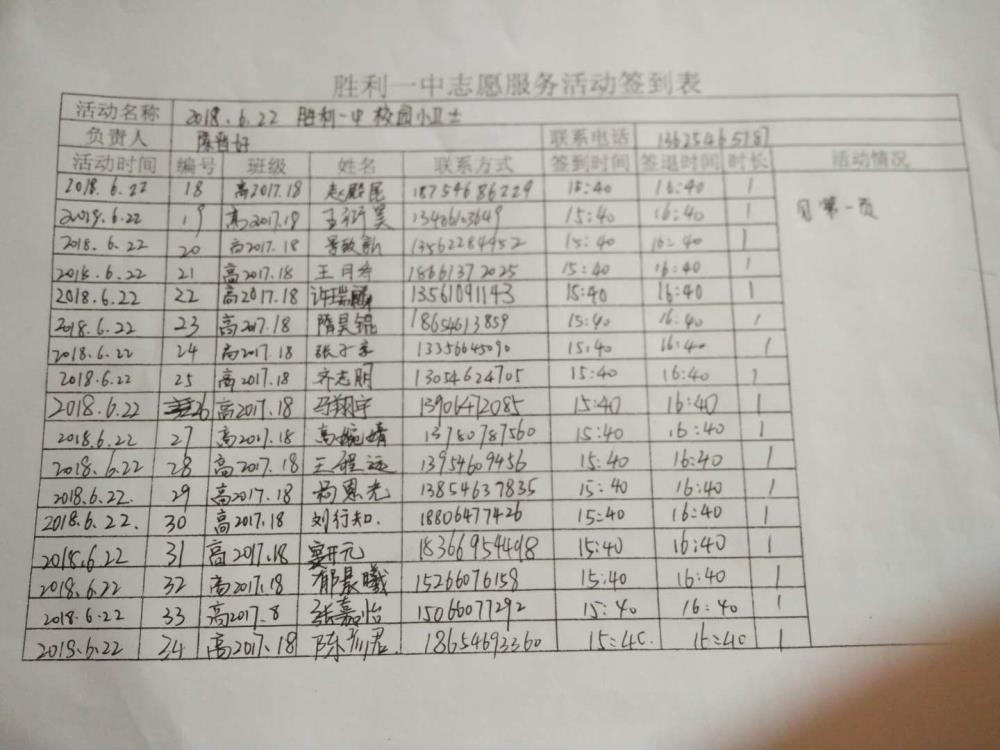 胜利一中志愿服务活动签到表
活动名称 2018.6.22 胜利一中 校园小卫士
负责人 联系电话 13625465787
活动时间 编号 班级 姓名 联系方式 签到时间 签退时间 时长 活动情况
2018.6.22 18 高2017.18 18754686229 15:40 16:40 1 见第一页
2018.6.22 19 高2017.18 13406103649 15:40 16:40 1
2018.6.22 20 高2017.18 13562284952 15:40 16:40 1
2018.6.22 21 高2017.18 王月 18661372025 15:40 16:40 1
2018.6.22 22 高2017.18 许瑞麟 13561091143 15:40 16:40 1
2018.6.22 23 高2017.18 隋昊锟 18654613859 15:40 16:40 1
2018.6.22 24 高2017.18 张子 13356645090 15:40 16:40 1
2018.6.22 25 高2017.18 齐志明 13054624705 15:40 16:40 1
2018.6.22 26 高2017.18 马翔宇 13906472085 15:40 16:40 1
2018.6.22 27 高2017.18 高婉婧 13780787560 15:40 16:40 1
2018.6.22 28 高2017.18 王程远 13954609456 15:40 16:40 1
2018.6.22. 29 高2017.18 杨恩光 13854637835 15:40 16:40 1
2018.6.22. 30 高2017.18 刘行知. 18806477426 15:40 16:40 1
2018.6.22 31 高2017.18 宴开元 18366954498 15:40 16:40 1
2018.6.22 32 高2017.18 郁晨曦 15266076158 15:40 16:40 1
2018.6.22 33 高2017.8 张嘉怡 15066077292 15:40 16:40 1
2018.6.22 34 高2017.18 陈彦君. 18654693360 15:40. 16:40 1